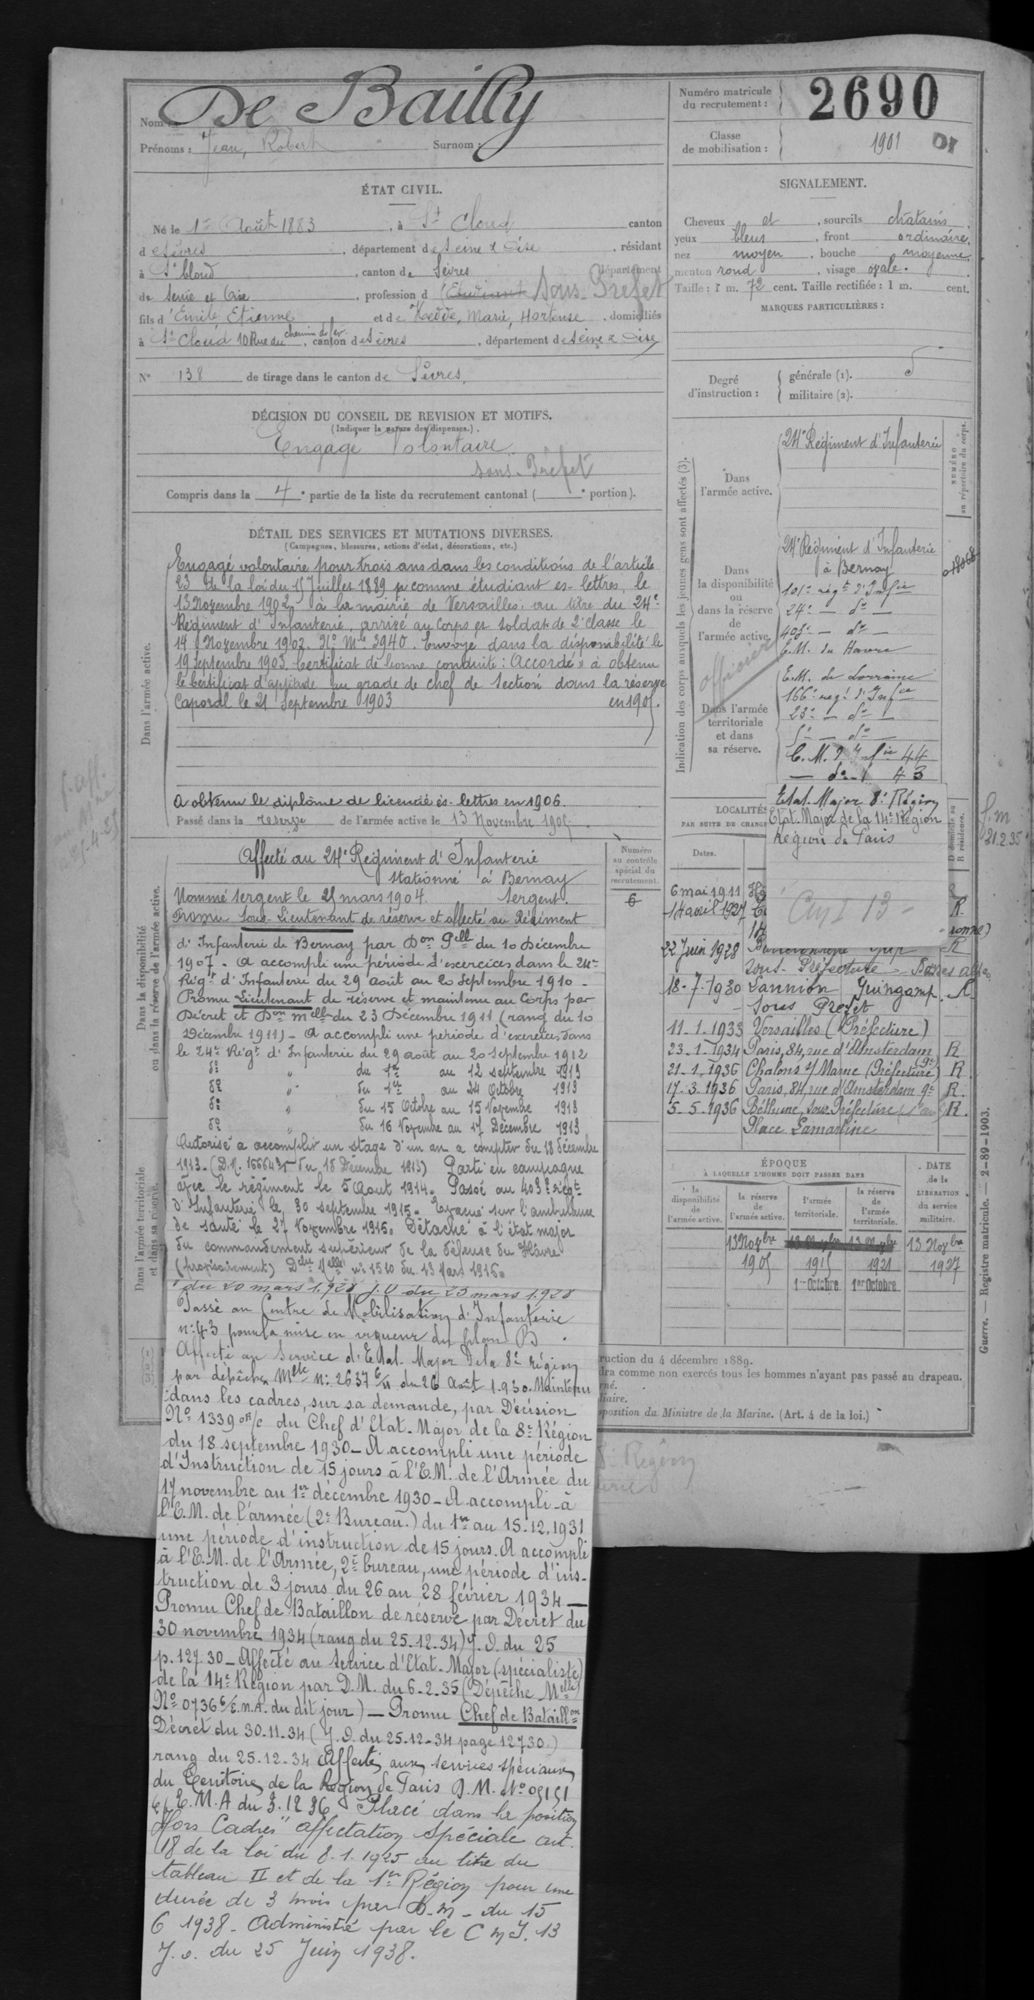 Nom : De Bailly
Prénoms : Jean, Robert Surnom :
Numéro matricule du recrutement : 2690
Classe de mobilisation : 1901
ÉTAT CIVIL.
Né le 1er Août 1883, à St Cloud canton
de Sèvres, département de Seine & Oise, résidant
à St Cloud, canton de Sèvres département
de Seine et Oise, profession d'Etudiant Sous-Préfet
fils d'Emile Etienne et de Marie, Hortense, domiciliés
à St Cloud 10 Rue du chemin de fer, canton de Sèvres, département de Seine & Oise
No 138 de tirage dans le canton de Sèvres,
SIGNALEMENT.
Cheveux et, sourcils chatains,
yeux bleus, front ordinaire,
nez moyen, bouche moyenne,
menton rond, visage ovale.
Taille : 1 m. 72 cent. Taille rectifiée : 1 m. cent.
MARQUES PARTICULIÈRES :
Degré d'instruction : générale (1). 5
militaire (2).
DÉCISION DU CONSEIL DE REVISION ET MOTIFS.
(Indiquer la nature des dispenses.)
Engagé Volontaire.
Sous-Préfet
Compris dans la 4e partie de la liste du recrutement cantonal ( e portion).
DÉTAIL DES SERVICES ET MUTATIONS DIVERSES.
(Campagnes, blessures, actions d'éclat, décorations, etc.)
Dans l'armée active.
Engagé volontaire pour trois ans dans les conditions de l'article
23 de la loi du 15 Juillet 1889 comme étudiant es-lettres, le
13 Novembre 1902 à la mairie de Versailles, au titre du 24e
Régiment d'Infanterie, arrivé au Corps et soldat de 2e classe le
14 Novembre 1902. No Mle 3940. Envoyé dans la disponibilité le
19 Septembre 1903. Certificat de bonne conduite : Accordé. A obtenu
le Certificat d'aptitude au grade de chef de section dans la réserve
Caporal le 21 Septembre 1903 en 1905.
A obtenu le diplôme de licencié ès-lettres en 1906.
Passé dans la réserve de l'armée active le 13 Novembre 1905
Dans la disponibilité ou dans la réserve de l'armée active.
Affecté au 24e Régiment d'Infanterie
stationné à Bernay
Nommé sergent le 21 mars 1904. Sergent.
Promu Sous-Lieutenant de réserve et affecté au Régiment
d'Infanterie de Bernay par Don Pelle du 10 Décembre
1907. A accompli une période d'exercices dans le 24e
Régt d'Infanterie du 29 août au 20 Septembre 1910.
Promu Lieutenant de réserve et maintenu au Corps par
Décret et Don melle du 23 Décembre 1911 (rang du 10
Décembre 1911) - A accompli une période d'exercices dans
le 24e Régt d'Infanterie du 29 août au 20 Septembre 1912
do " du 1er au 12 septembre 1913
do " du 1er au 24 Octobre 1913
do " du 15 Octobre au 15 Novembre 1913
do " du 16 Novembre au 17 Décembre 1913
Autorisé à accomplir un stage d'un an à compter du 18 décembre
1913 - (D.M. 166643 du 18 Décembre 1913) Parti en campagne
avec le régiment le 5 Aout 1914. Passé au 403e régt
d'Infanterie le 30 septembre 1915. Evacué sur l'ambulance
de santé le 27 Novembre 1915. Détaché à l'état major
du commandement supérieur de la défense du Hâvre
(provisoirement) no 1510 du 13 Mars 1916.
du 20 mars 1928 J.O du 23 mars 1928
Passé au Centre de Mobilisation d'Infanterie
no 43 pour la mise en vigueur du plan B.
Affecté au Service d'Etat-Major de la 8e région
par dépêche Mlle No 2637 du 26 Août 1930. Maintenu
dans les cadres, sur sa demande, par Décision
No 1339 du Chef d'Etat-Major de la 8e Région
du 18 septembre 1930 - A accompli une période
d'Instruction de 15 jours à l'E.M. de l'Armée du
17 novembre au 1er décembre 1930 - A accompli à
l'E.M. de l'armée (2e Bureau.) du 1er au 15.12.1931
une période d'instruction de 15 jours. A accompli
à l'E.M. de l'Armée, 2e bureau, une période d'ins-
truction de 3 jours du 26 au 28 février 1934 -
Promu Chef de Bataillon de réserve par Décret du
30 novembre 1934 (rang du 25.12.34) J.O. du 25
p. 127.30 - Affecté au Service d'Etat-Major (spécialiste)
de la 14e Région par D.M. du 6-2-35 (Dépêche Melle
No 0736 E.M.A. du dit jour) - Promu Chef de Bataillon
Décret du 30.11.34 (J.O. du 25-12-34 page 12730.)
rang du 25.12.34 Affecté aux services spéciaux
du Territoire de la Région de Paris D.M. No 05151
E.M.A du 3.12 36 Placé dans la position
"Hors Cadres" affectation Spéciale art.
18 de la loi du 8.1.1925 au titre du
tableau II et de la 1ère Région pour une
durée de 3 mois par D.M. du 15
6 1938. Administré par le C M I. 13
J.o. du 25 Juin 1938.
Dans l'armée territoriale et dans sa réserve.
Numéro au contrôle spécial du recrutement.
6
Indication des corps auxquels les jeunes gens sont affectés (3).
Dans l'armée active.
24e Régiment d'Infanterie
NUMÉRO au répertoire du corps.
Dans la disponibilité ou dans la réserve de l'armée active.
24e Régiment d'Infanterie
à Bernay
101e régt d'Infie
24e - do -
403e - do -
E.M. du Havre
officier
Dans l'armée territoriale et dans sa réserve.
E.M. de Lorraine
166e regt d'Infie
23e - do -
5e - do -
C.M. d'Infie 44
- do - 43
Etat-Major 8e Région
Etat Major de la 14e Région
Région de Paris
LOCALITÉS
PAR SUITE DE CHANGE
Dates.
D domicile ou R résidence.
6 mai 1911
14 avril 1927 R
22 Juin 1928 R
Sous-Préfecture - Basses Alpes
18-7-1930 Lannion Guingamp. R
Sous Préfet
11.1.1933 Versailles (Préfecture)
23.1.1934 Paris, 84, rue d'Amsterdam R
21.1.1936 Chalons s/ Marne (Préfecture) R.
17.3.1936 Paris, 84, rue d'Amsterdam 9e R.
5-5-1936 Béthune, Sous Préfecture R.
Place Lamartine
21.2.35
ÉPOQUE
À LAQUELLE L'HOMME DOIT PASSER DANS
la disponibilité de l'armée active.
la réserve de l'armée active.
l'armée territoriale.
la réserve de l'armée territoriale.
DATE de la LIBÉRATION du service militaire.
13 Novbre 1905
13 Novbre 1915
1er Octobre
13 Novbre 1921
1er Octobre
13 Novbre 1927
ruction du 4 décembre 1889.
dra comme non exercés tous les hommes n'ayant pas passé au drapeau.
position du Ministre de la Marine. (Art. 4 de la loi.)
Guerre. — Registre matricule. — 2-89-1903.